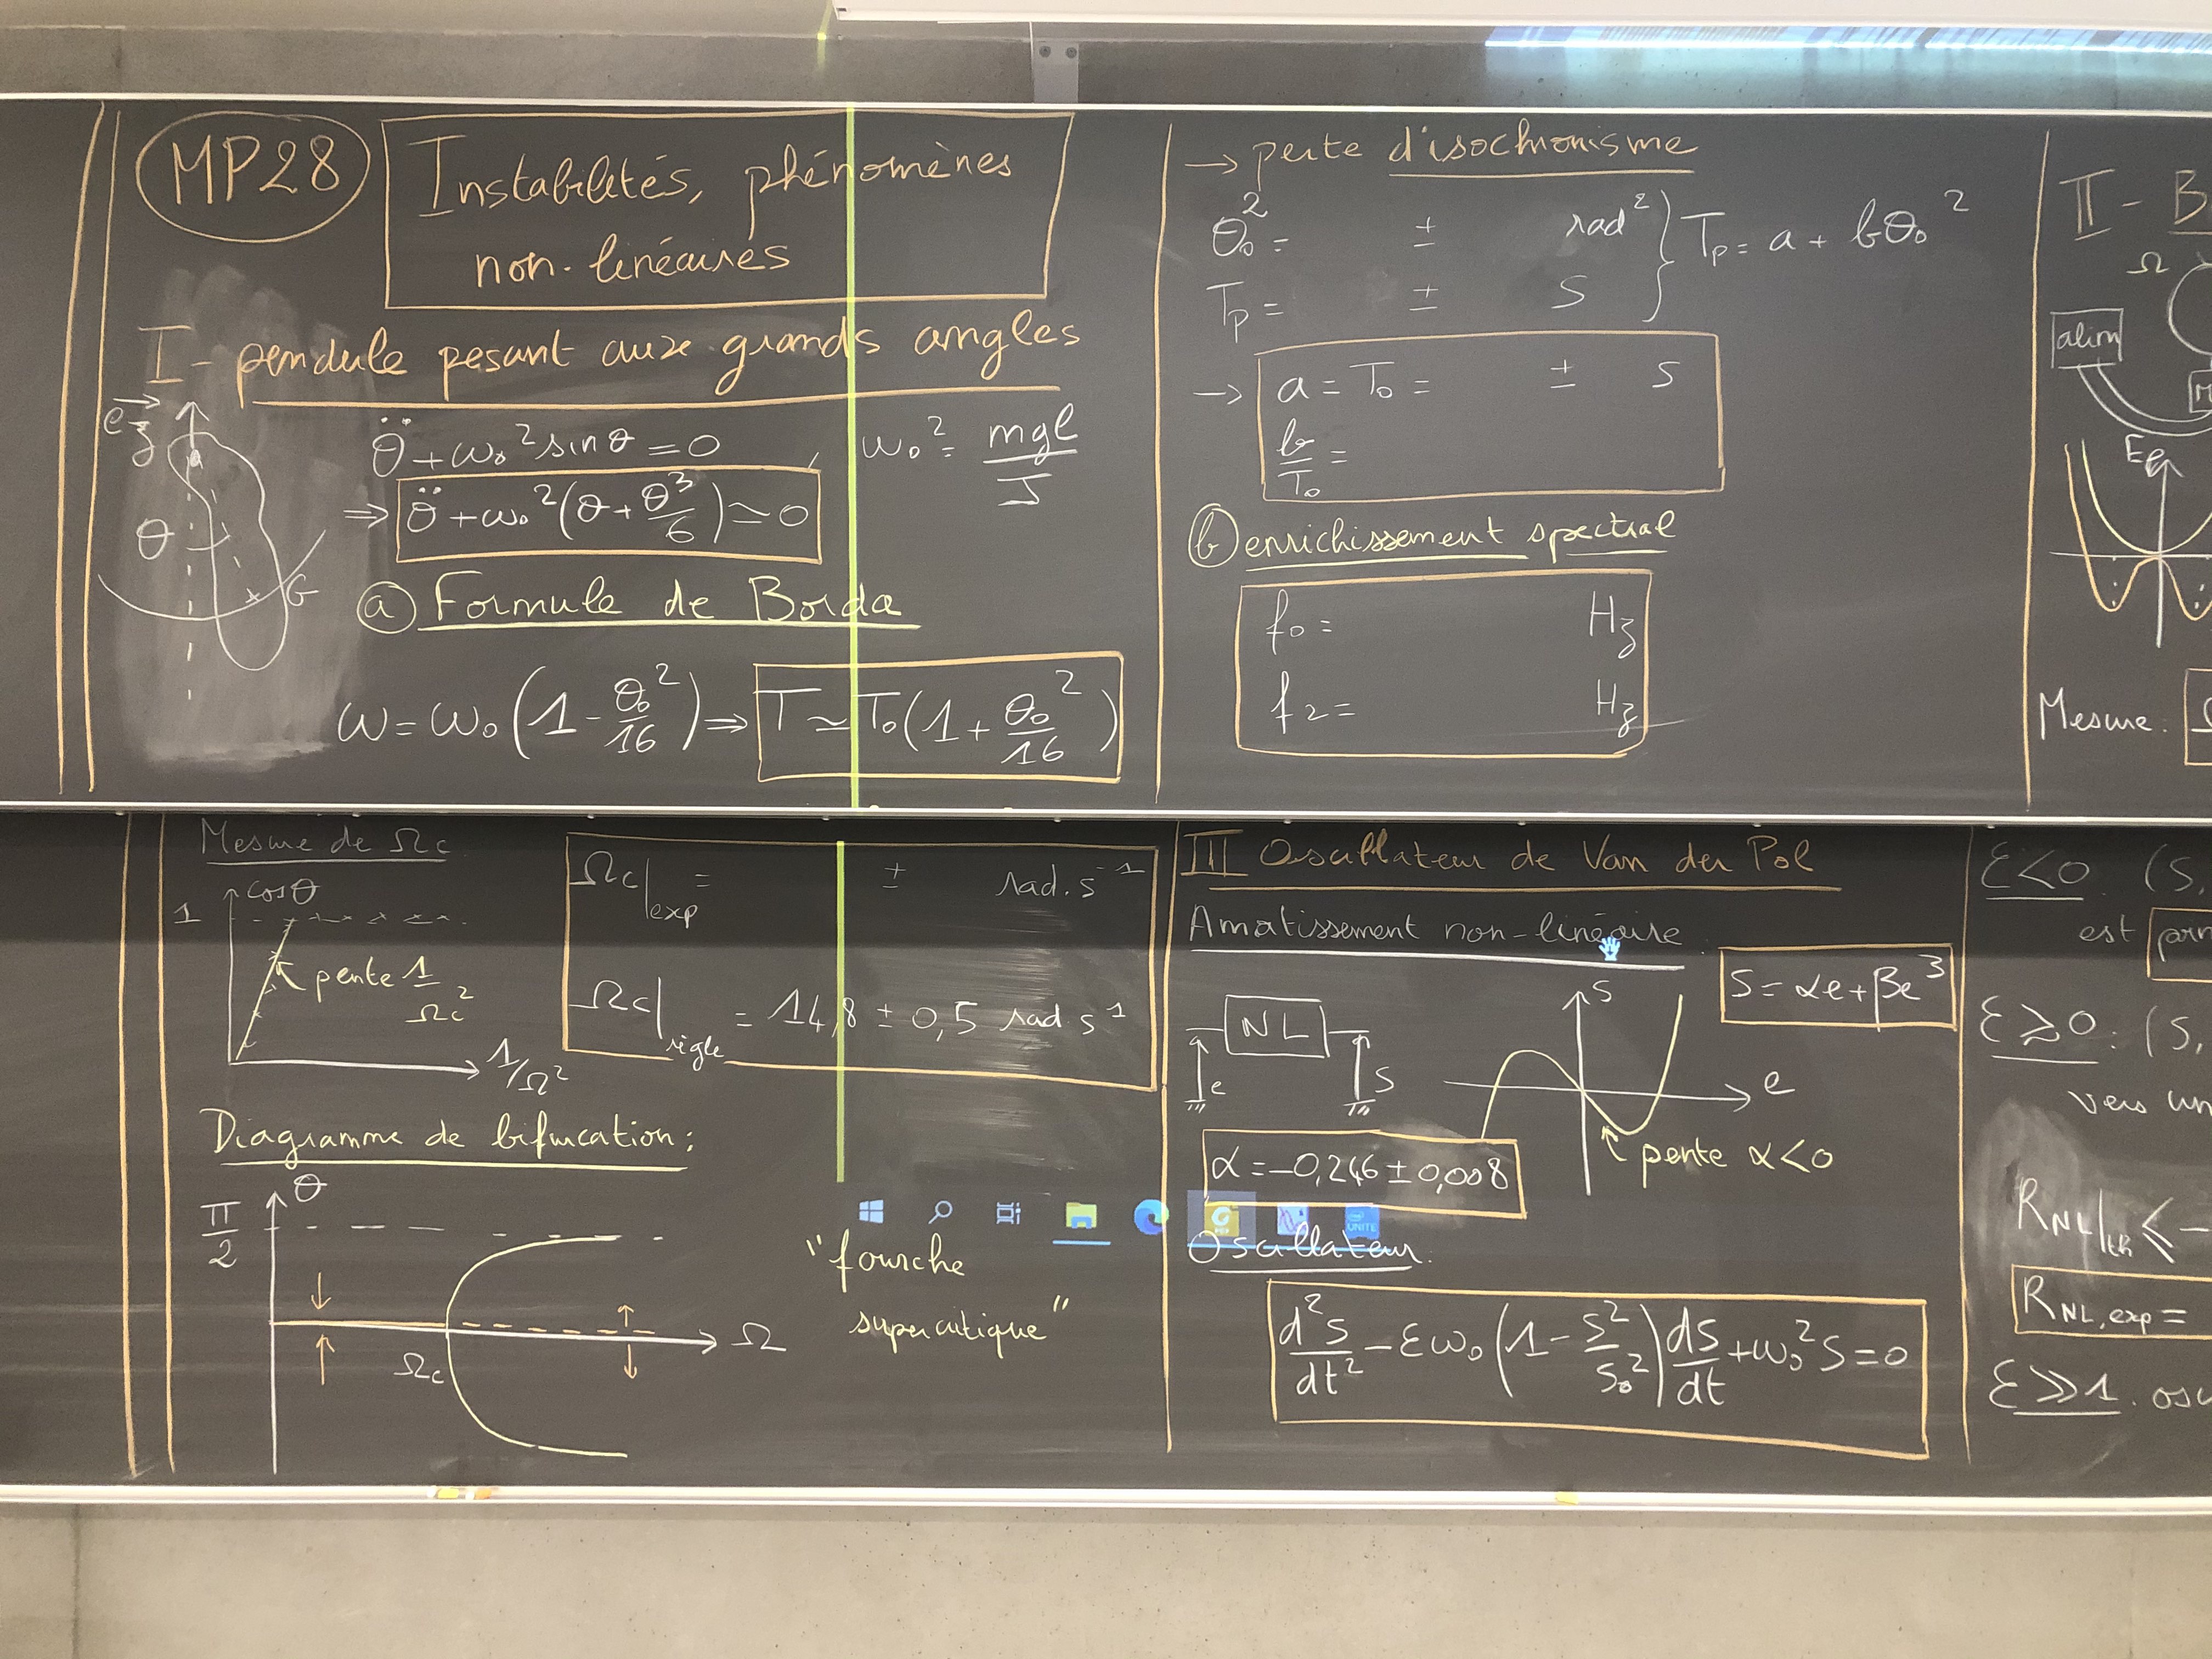 MP28
Instabilités, phénomènes
non-linéaires
I - pendule pesant aux grands angles
e⃗z
θ
G
θ̈ + ω₀² sin θ = 0 , ω₀² = mgl/J
⇒ θ̈ + ω₀²(θ + θ³/6) ≃ 0
ⓐ Formule de Borda
ω = ω₀(1 - θ₀²/16) ⇒ T ≃ T₀(1 + θ₀²/16)
→ perte d'isochronisme
θ₀² = ± rad²
T_p = ± s
} T_p = a + bθ₀²
→ a = T₀ = ± s
b/T₀ =
ⓑ enrichissement spectral
f₀ = Hz
f₂ = Hz
II - B
Ω
alim
M
Ep
Mesure :
Mesure de Ωc
cosθ
1
pente 1/Ωc²
1/Ω²
Ωc|exp = ± rad.s⁻¹
Ωc|règle = 14,8 ± 0,5 rad.s⁻¹
Diagramme de bifurcation :
θ
π/2
Ωc
Ω
"fourche
supercritique"
III Oscillateur de Van der Pol
Amortissement non-linéaire
NL
e
s
s
e
S = αe + βe³
pente α<0
α = -0,246 ± 0,008
UNITE
Oscillateur.
d²s/dt² - εω₀(1 - s²/s₀²) ds/dt + ω₀² s = 0
ε<0 : (S,
est
ε ≳ 0 : (S,
vers un
R_NL|th ≤ -
R_NL,exp =
ε ≫ 1 :